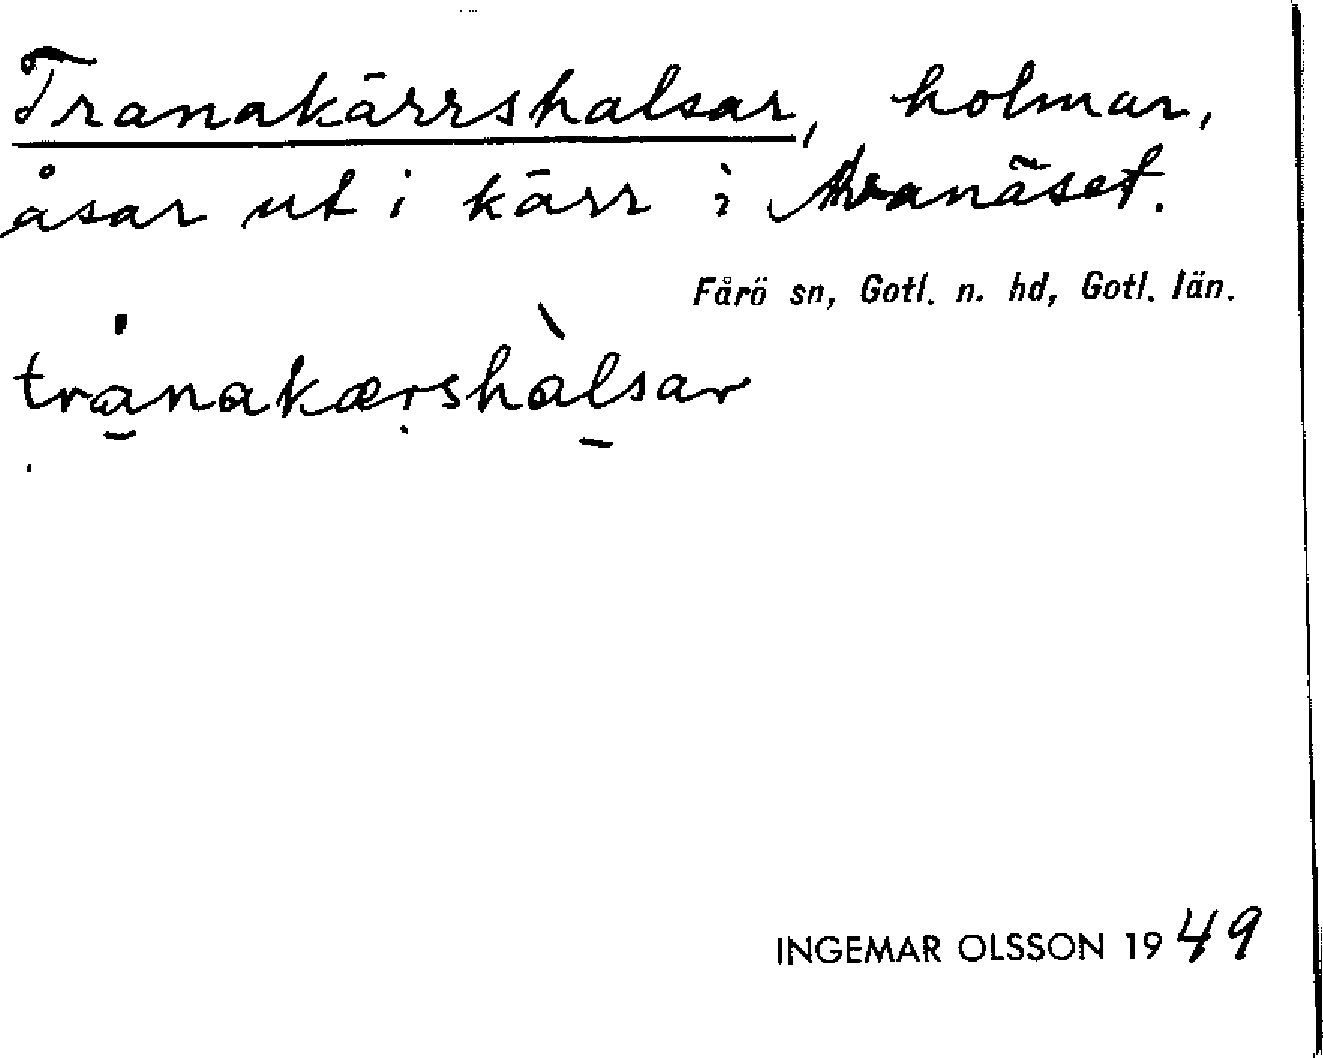 Tranakärrshalsar, holmar,
åsar ut i kärr i Avanäset.
Fårö sn, Gotl. n. hd, Gotl. län.
tranakærshalsar
INGEMAR OLSSON 1949